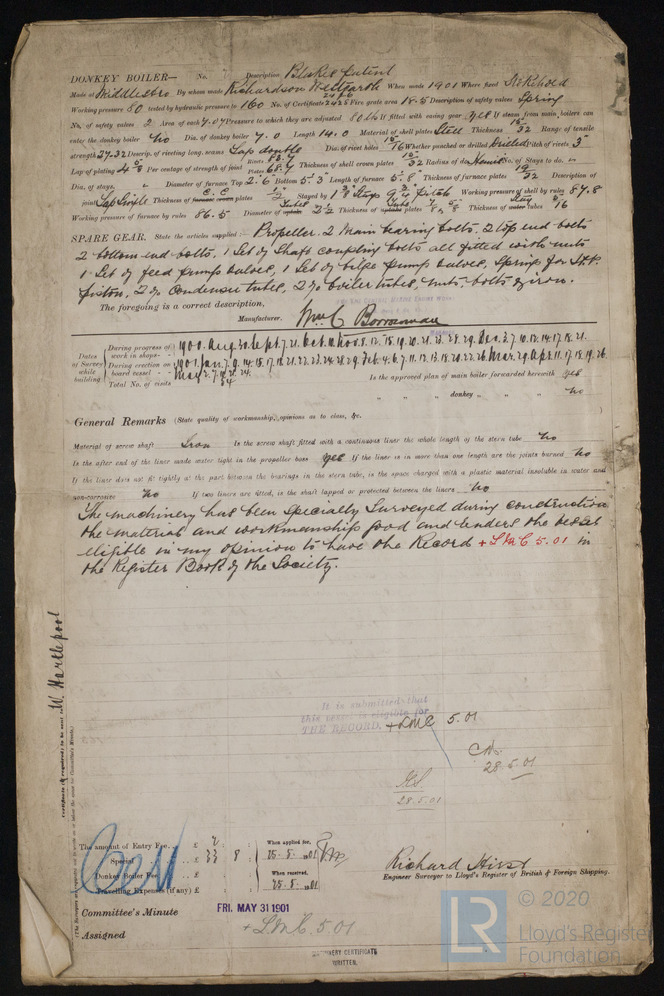 DONKEY BOILER— No. Description Blake's patent
Made at Middlesbro By whom made Richardson Westgarth When made 1901 Where fixed Stokehold
Working pressure 80 tested by hydraulic pressure to 160 No. of Certificate 2426 Fire grate area 18.5 Description of safety valves Spring
No. of safety valves 2 Area of each 7.07 Pressure to which they are adjusted 80 lbs If fitted with easing gear yes If steam from main boilers can
enter the donkey boiler No Dia. of donkey boiler 7.0 Length 14.0 Material of shell plates Steel Thickness 15/32 Range of tensile
strength 27-32 Descrip. of riveting long. seams Lap double Dia. of rivet holes 13/16 Whether punched or drilled drilled Pitch of rivets 3"
Lap of plating 4 Per centage of strength of joint Rivets Plates 68.7 Thickness of shell crown plates Radius of do. No. of Stays to do. "
Dia. of stays. " Diameter of furnace Top 2'.6" Bottom 5'.3" Length of furnace 5'.8" Thickness of furnace plates 19/32 Description of
joint Lap Single Thickness of furnace crown plates 1/2 Stayed by 1 3/8 Stays 9 3/4 pitch Working pressure of shell by rules 87.8
Working pressure of furnace by rules 86.5 Diameter of uptake Tubes 2 1/2 Thickness of uptake Tube plates 7/8, 5/8 Thickness of water Stay tubes 5/16
SPARE GEAR. State the articles supplied:— Propeller. 2 Main bearing bolts, 2 top end bolts
2 bottom end bolts, 1 Set of shaft coupling bolts all fitted with nuts
1 Set of feed pump valves, 1 Set of bilge pump valves, Springs for H.P.
piston, 2% Condenser tubes, 2% boiler tubes, nuts, bolts & iron.
The foregoing is a correct description,
Manufacturer. Wm C Borrowman
Dates of Survey while building
During progress of work in shops -- 1900. Aug 30. Sept. 7. 21. Oct. Nov 5. 8. 12. 15. 19. 20. 21. 23. 28. 29. Dec. 3. 7. 10. 13. 14. 17. 18. 21.
During erection on board vessel --- 1901. Jan. 7. 9. 14. 15. 17. 21. 22. 23. 24. 28. 29. Feb. 4. 6. 7. 11. 12. 13. 18. 20. 22. 26. Mar. 29. Apr. 11. 17. 18. 19. 26.
May 2. 7. 24.
Total No. of visits 54 Is the approved plan of main boiler forwarded herewith yes
" " " donkey " " " No
General Remarks (State quality of workmanship, opinions as to class, &c.
Material of screw shaft Iron Is the screw shaft fitted with a continuous liner the whole length of the stern tube No
Is the after end of the liner made water tight in the propeller boss yes If the liner is in more than one length are the joints burned No
If the liner does not fit tightly at the part between the bearings in the stern tube, is the space charged with a plastic material insoluble in water and
non-corrosive No If two liners are fitted, is the shaft lapped or protected between the liners No
The machinery has been specially surveyed during construction
the material and workmanship good and renders the vessel
eligible in my opinion to have the Record +LMC 5.01 in
the Register Book of the Society.
W. Hartlepool
It is submitted that
this vessel is eligible for
THE RECORD. +LMC 5.01
28.5.01
28.5.01
The amount of Entry Fee. . £ 2 : :
Special . . £ 33 : 8 :
Donkey Boiler Fee . . £ : :
Travelling Expenses (if any) £ : :
When applied for,
25.5.1901
When received,
25.5.1901
Richard Hirst
Engineer Surveyor to Lloyd's Register of British & Foreign Shipping.
Committee's Minute FRI. MAY 31 1901
Assigned + LMC 5.01
MACHINERY CERTIFICATE
WRITTEN.
LR
© 2020
Lloyd's Register
Foundation